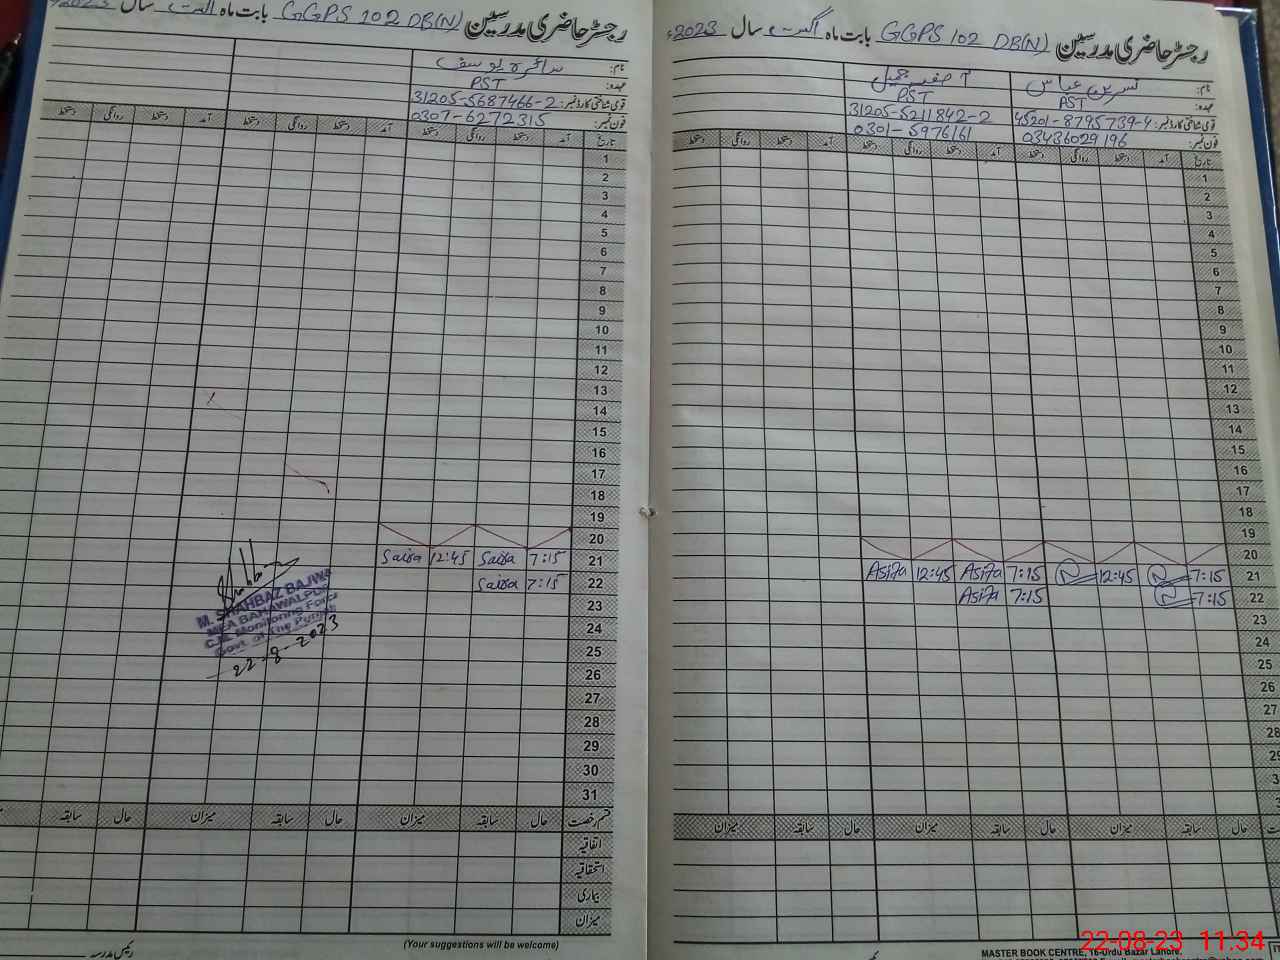 رجسٹر حاضری مدرسین GGPS 102 DB(N) بابت ماہ اگست سال 2023ء
نام: نسرین عباس آصفہ جمیل
عہدہ: PST PST
قومی شناختی کارڈ نمبر: 45201-8795739-4 31205-5211842-2
فون نمبر: 03436029196 0301-5976161
تاریخ آمد دستخط روانگی دستخط آمد دستخط روانگی دستخط آمد دستخط روانگی دستخط
1
2
3
4
5
6
7
8
9
10
11
12
13
14
15
16
17
18
19
20
21 7:15 12:45 7:15 Asifa 12:45 Asifa
22 7:15 7:15 Asifa
23
24
25
26
27
28
29
3
حال سابقہ میزان حال سابقہ میزان حال سابقہ میزان
MASTER BOOK CENTRE, 16-Urdu Bazar Lahore.
رجسٹر حاضری مدرسین GGPS 102 DB(N) بابت ماہ اگست سال 2023
نام: سائرہ یوسف
عہدہ: PST
قومی شناختی کارڈ نمبر: 31205-5687466-2
فون نمبر: 0307-6272315
تاریخ آمد دستخط روانگی دستخط آمد دستخط روانگی دستخط آمد دستخط روانگی دستخط
1
2
3
4
5
6
7
8
9
10
11
12
13
14
15
16
17
18
19
20
21 7:15 Saira 12:45 Saira
22 7:15 Saira
23
24
25
26
27
28
29
30
31
M. SHAHBAZ BAJWA
MEA BAHAWALPUR
C.M. Monitoring Force
Govt. of The Punjab
22-8-2023
قسم رخصت حال سابقہ میزان حال سابقہ میزان حال سابقہ
اتفاقیہ
استحقاقیہ
بیماری
میزان
(Your suggestions will be welcome)
رئیس مدرسہ
22-08-23 11:34